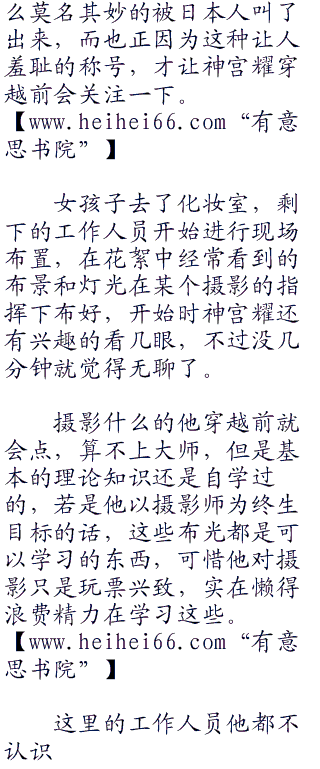 么莫名其妙的被日本人叫了
出来，而也正因为这种让人
羞耻的称号，才让神宫耀穿
越前会关注一下。
【www.heihei66.com“有意
思书院”】
女孩子去了化妆室，剩
下的工作人员开始进行现场
布置，在花絮中经常看到的
布景和灯光在某个摄影的指
挥下布好，开始时神宫耀还
有兴趣的看几眼，不过没几
分钟就觉得无聊了。
摄影什么的他穿越前就
会点，算不上大师，但是基
本的理论知识还是自学过
的，若是他以摄影师为终生
目标的话，这些布光都是可
以学习的东西，可惜他对摄
影只是玩票兴致，实在懒得
浪费精力在学习这些。
【www.heihei66.com“有意
思书院”】
这里的工作人员他都不
认识